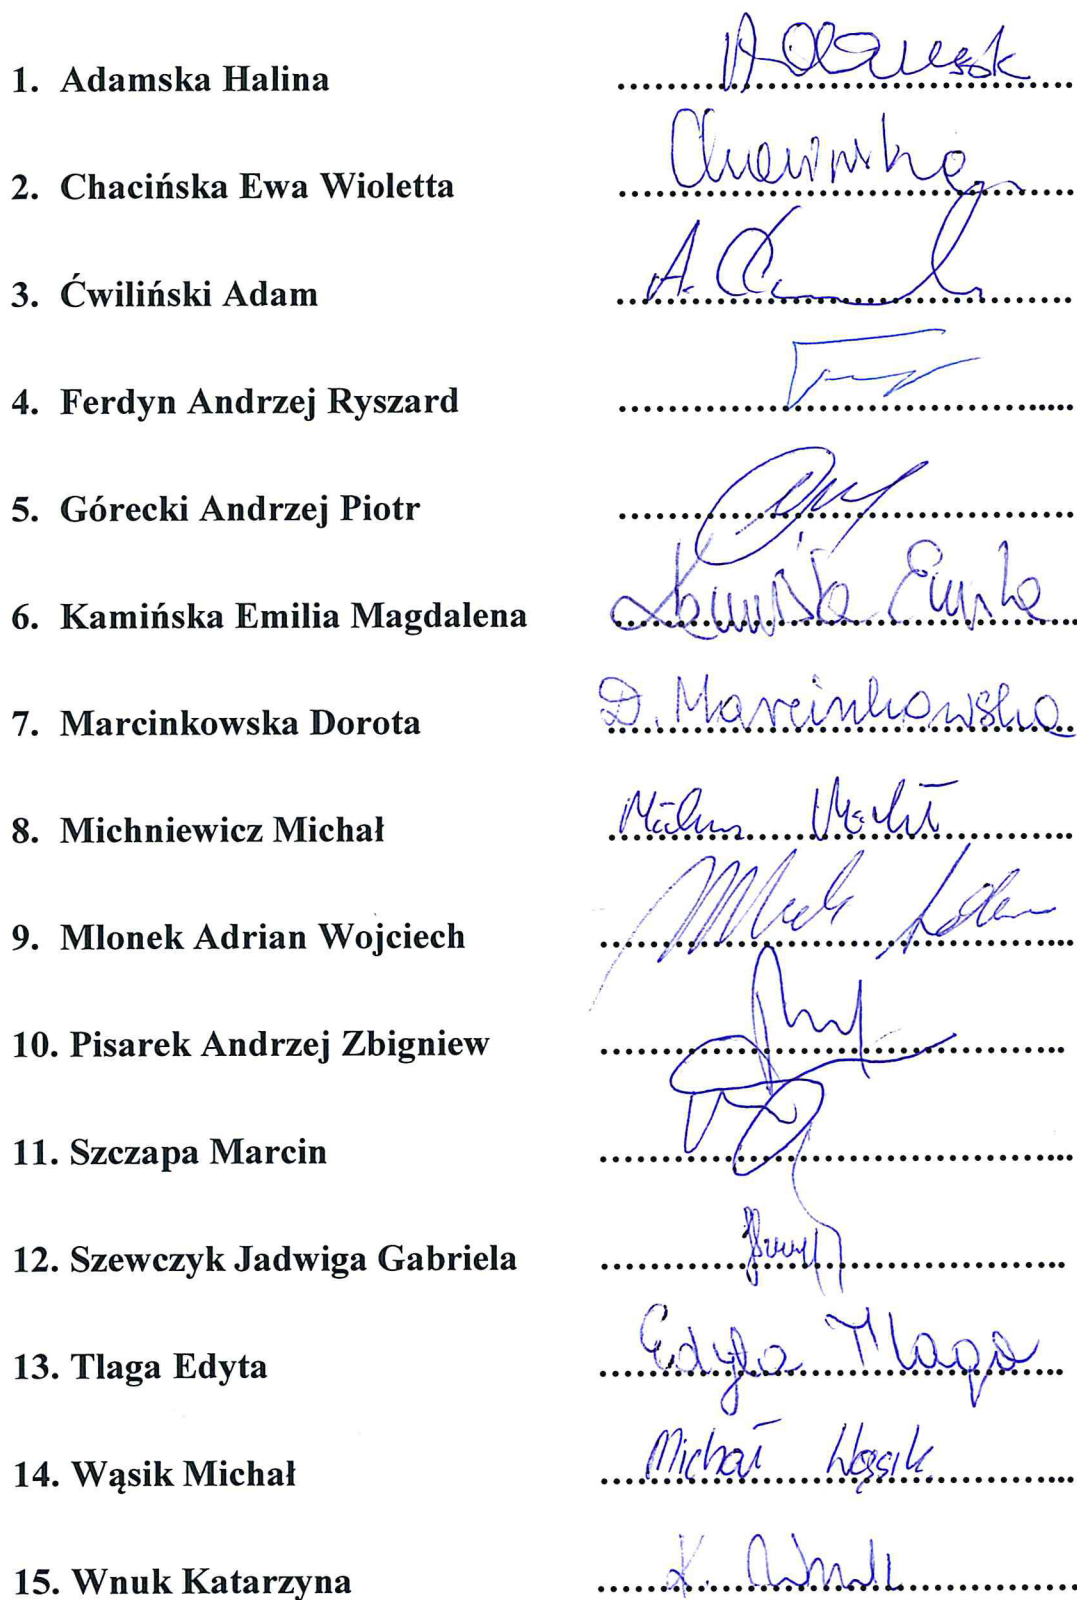 1. Adamska Halina
2. Chacińska Ewa Wioletta
3. Ćwiliński Adam A.
4. Ferdyn Andrzej Ryszard
5. Górecki Andrzej Piotr
6. Kamińska Emilia Magdalena
7. Marcinkowska Dorota D. Marcinkowska
8. Michniewicz Michał
9. Mlonek Adrian Wojciech
10. Pisarek Andrzej Zbigniew
11. Szczapa Marcin
12. Szewczyk Jadwiga Gabriela
13. Tlaga Edyta Edyta Tlaga
14. Wąsik Michał Michał Wąsik
15. Wnuk Katarzyna K. Wnuk